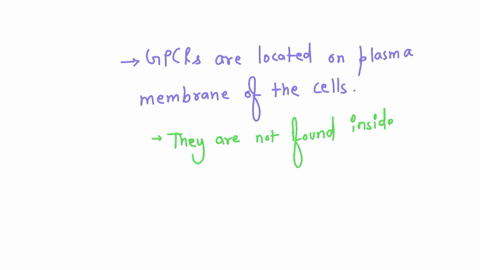 → GPCRs are located on plasma
membrane of the cells.
→ They are not found inside